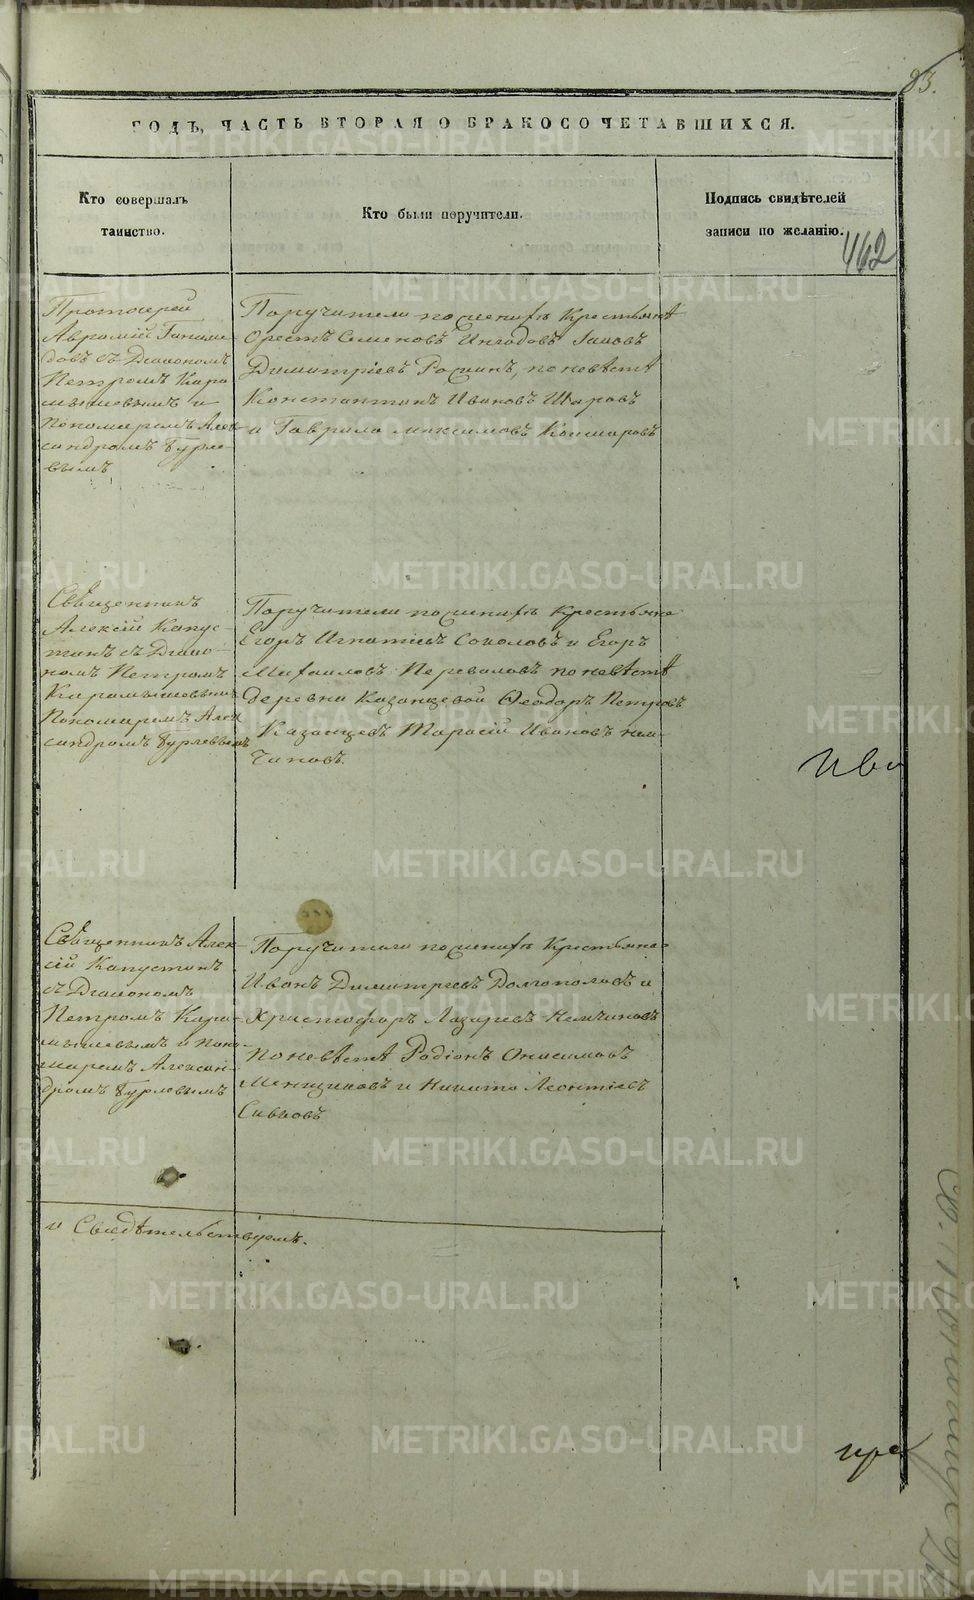 83.
ГОДЪ, ЧАСТЬ ВТОРАЯ О БРАКОСОЧЕТАВШИХСЯ.
Кто совершалъ
таинство.
Кто были поручители.
Подпись свидѣтелей
записи по желанію.
462
Протоіерей
Авромій
довъ съ Діакономъ
Петромъ Кара
мышевымъ и
Пономаремъ Алек
сандромъ Бурле
вымъ
Поручители по женихѣ Крестьянѣ
Орестъ Семеновъ Инюдовъ
Димитріевъ по невѣстѣ
Константинъ Ивановъ Шаровъ
и Гаврило Максимовъ Кошкаровъ
Священникъ
Алексій Капус-
тинъ съ Діако-
номъ Петромъ
Карамышевымъ
Пономаремъ Алек
сандромъ Бурлевымъ
Поручители по женихѣ Крестьяне
Егоръ Игнатіевъ Соколовъ и Егоръ
Михаиловъ Переваловъ по невѣстѣ
деревни Казанцевой Ѳеодоръ Петровъ
Казанцевъ Тарасій Ивановъ Нем-
чиновъ.
Ива
Священникъ Алек
сій Капустинъ
съ Діакономъ
Петромъ Кара-
мышевымъ и Поно
маремъ Алексан-
дромъ Бурлевымъ
Поручители по женихѣ Крестьяне
Иванъ Димитріевъ Долгополовъ и
Христофоръ Лазаревъ Немчиновъ
по невѣстѣ Родіонъ Онисимовъ
Менщиковъ и Никита Леонтіевъ
Сивковъ
и Свидѣтельствуемъ.
пре
METRIKI.GASO-URAL.RU